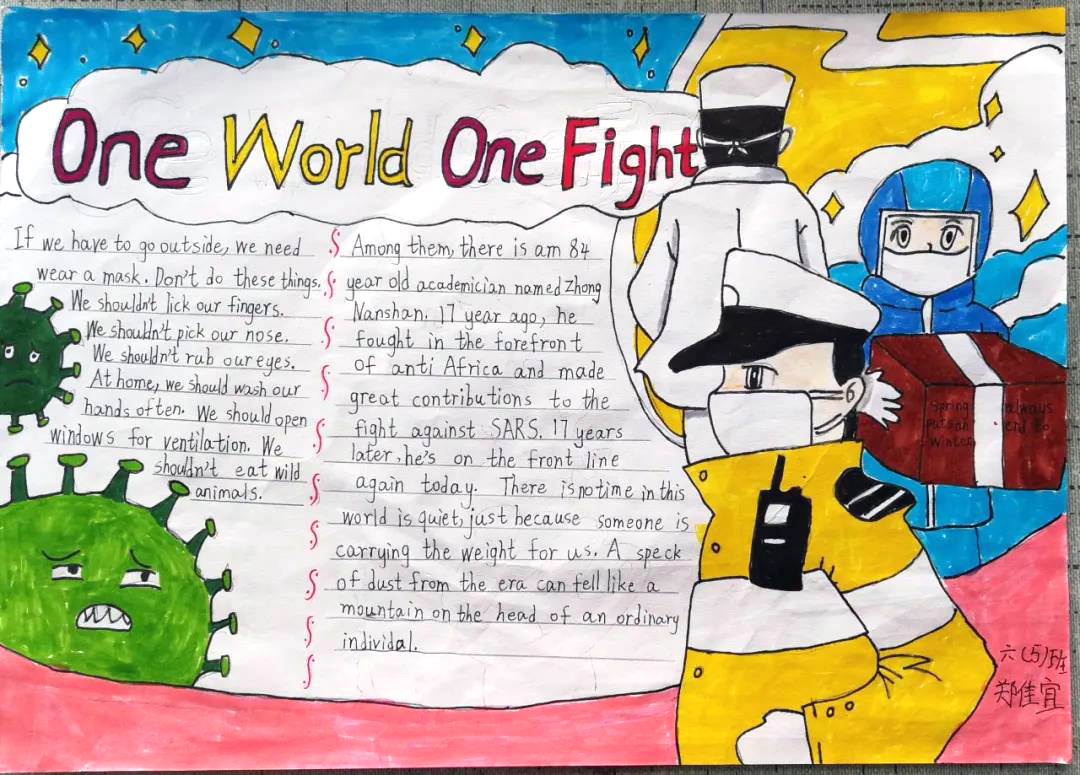 One World One Fight
If we have to go outside, we need
wear a mask. Don't do these things.
We shouldn't lick our fingers.
We shouldn't pick our nose.
We shouldn't rub our eyes.
At home, we should wash our
hands often. We should open
windows for ventilation. We
shouldn't eat wild
animals.
Among them, there is am 84
year old academician named Zhong
Nanshan. 17 year ago, he
fought in the forefront
of anti Africa and made
great contributions to the
fight against SARS. 17 years
later, he's on the front line
again today. There is no time in this
world is quiet, just because someone is
carrying the weight for us. A speck
of dust from the era can fell like a
mountain on the head of an ordinary
individal.
Spring always
puts an end to
winter
六(5)班
郑佳宜